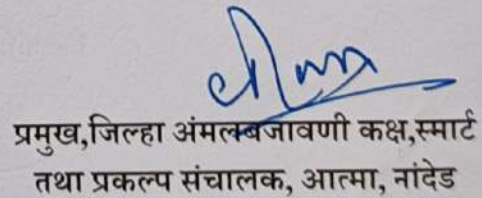 प्रमुख,जिल्हा अंमलबजावणी कक्ष,स्मार्ट
तथा प्रकल्प संचालक, आत्मा, नांदेड